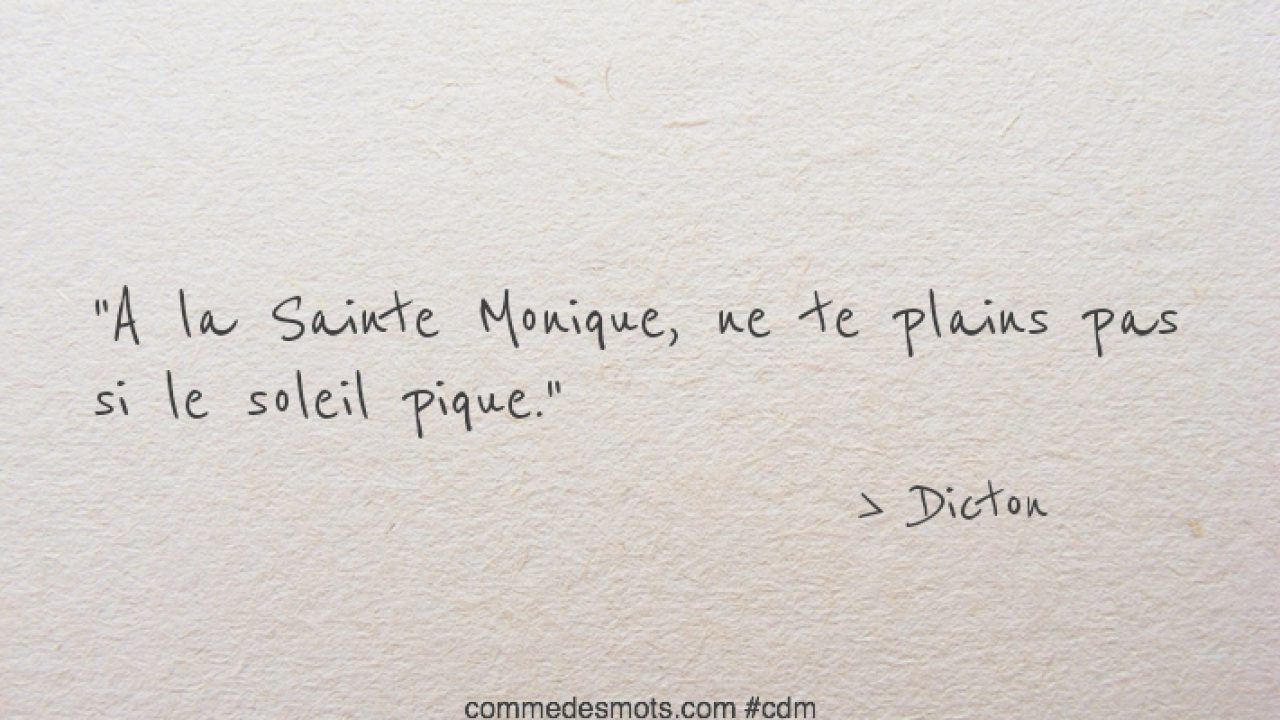 "A la Sainte Monique, ne te plains pas
si le soleil pique."
> Dicton
commedesmots.com #cdm